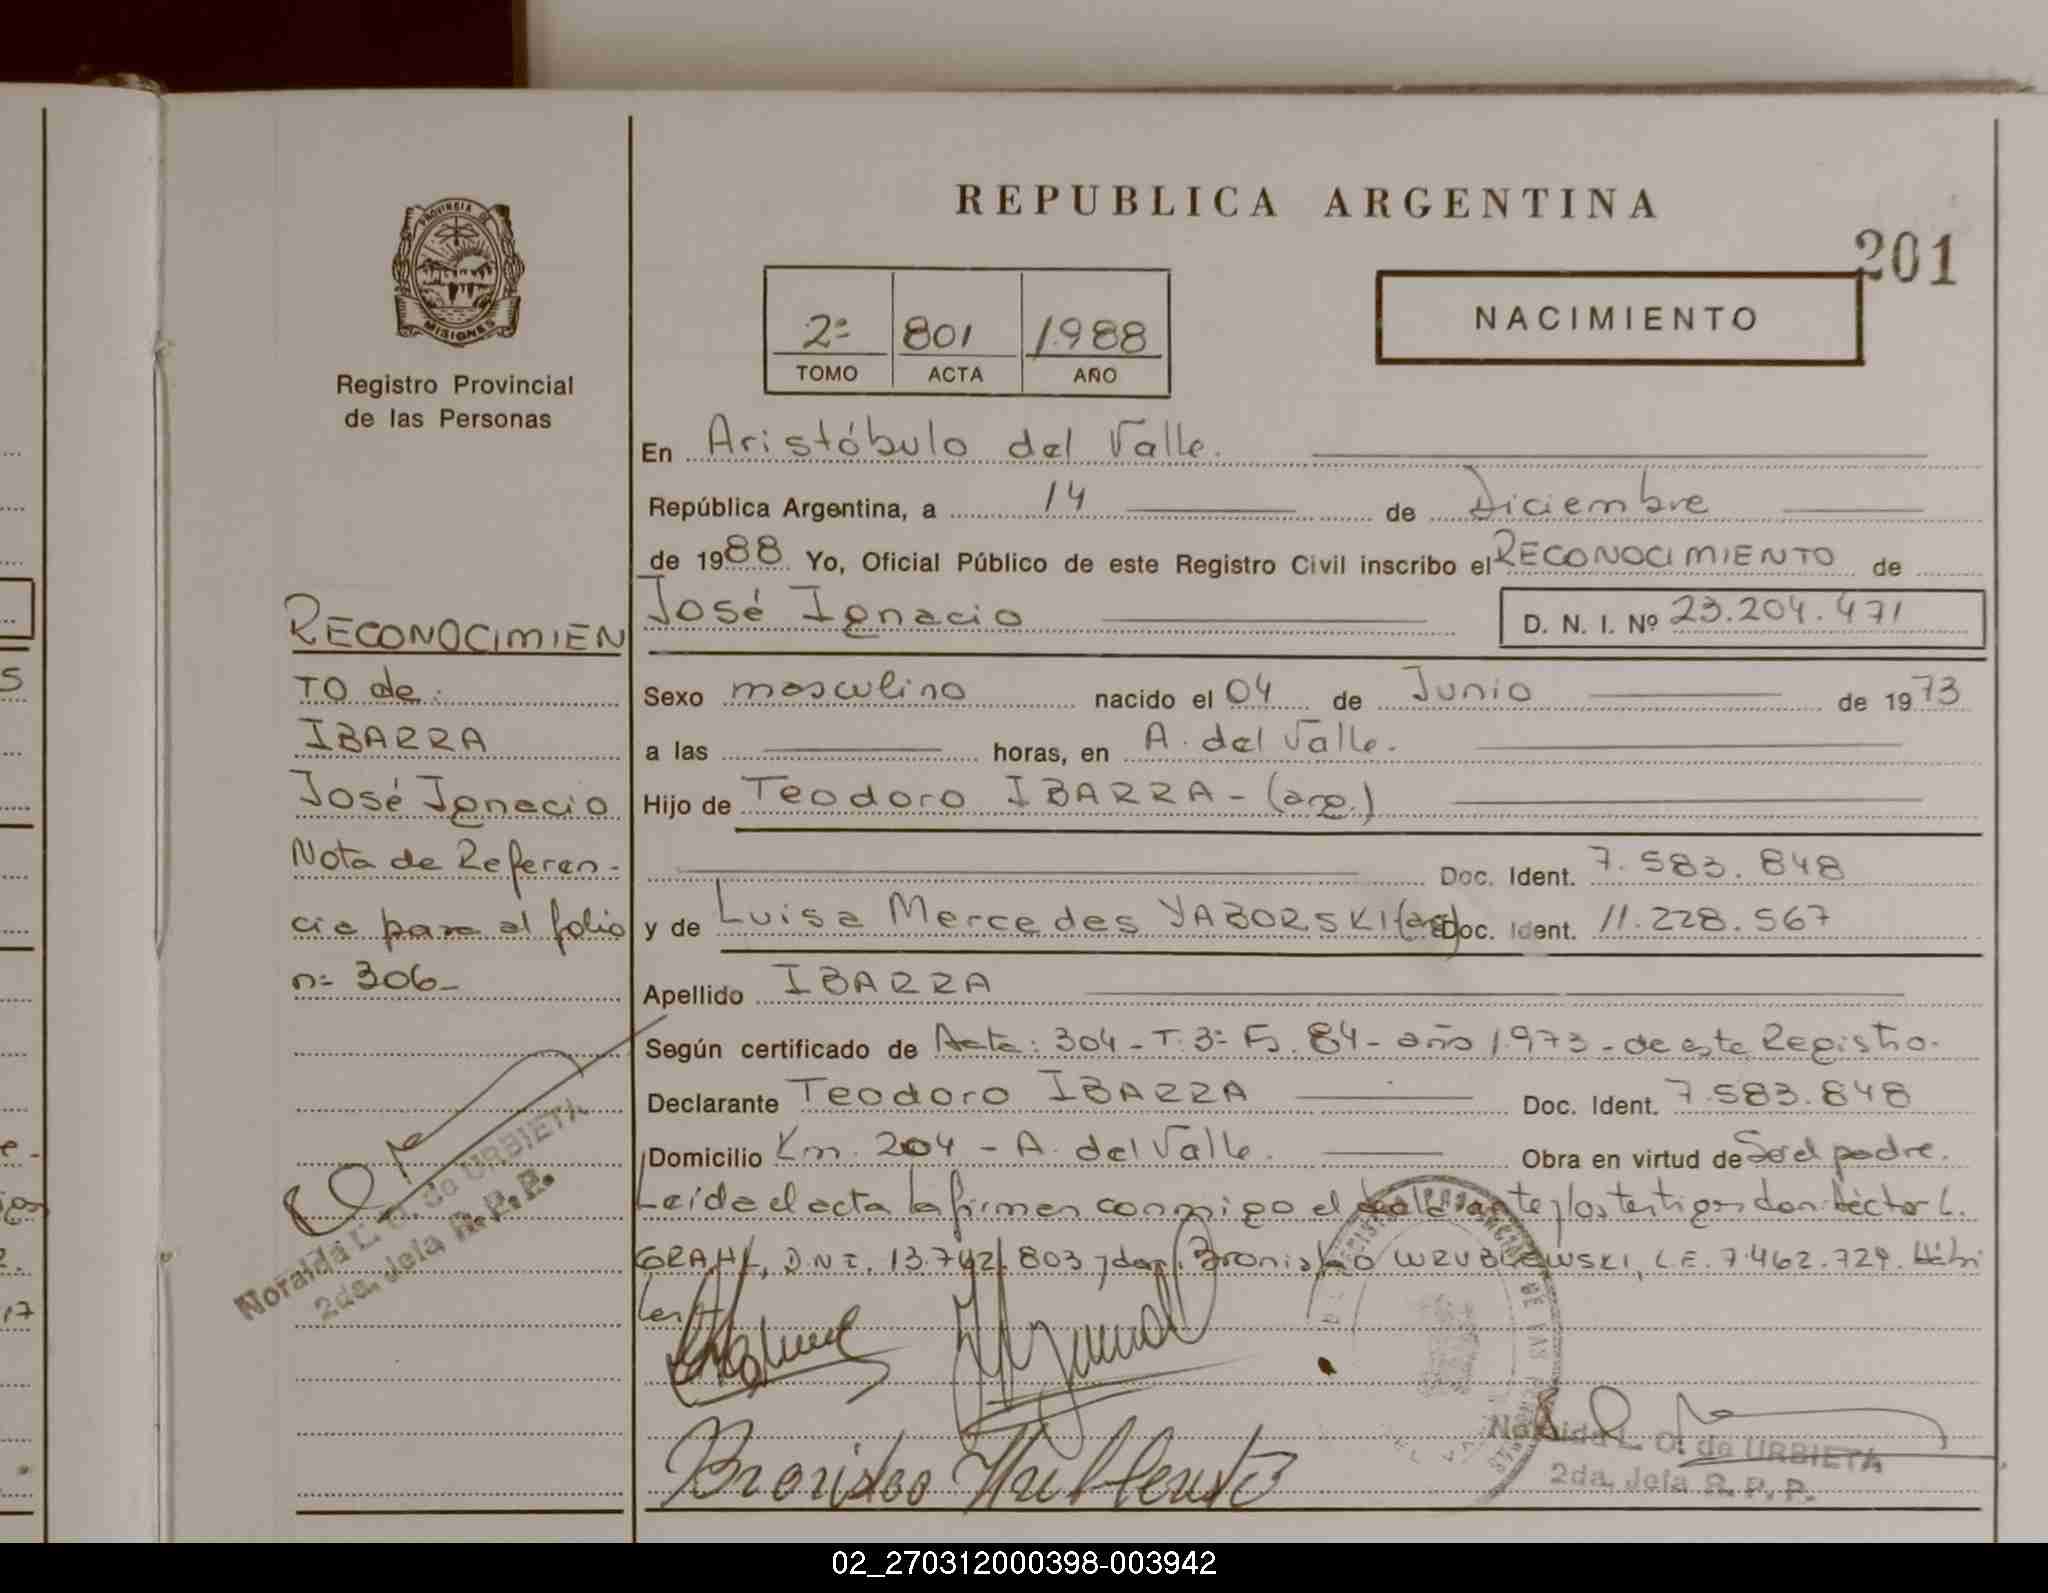 REPUBLICA ARGENTINA
201
PROVINCIA DE
MISIONES
Registro Provincial
de las Personas
2º 801 1.988
TOMO ACTA AÑO
NACIMIENTO
En Aristóbulo del Valle.
República Argentina, a 14 de Diciembre
de 1988 Yo, Oficial Público de este Registro Civil inscribo el RECONOCIMIENTO de
José Ignacio D. N. I. Nº 23.204.471
Sexo masculino nacido el 04 de Junio de 1973
a las horas, en A. del Valle.
Hijo de Teodoro IBARRA - (arg.)
Doc. Ident. 7.583.848
y de Luisa Mercedes YABORSKI (arg) Doc. Ident. 11.228.567
Apellido IBARRA
Según certificado de Acta: 304 - T. 3º Fº. 84 - año 1.973 - de este Registro.
Declarante Teodoro IBARRA Doc. Ident. 7.583.848
Domicilio Km. 204 - A. del Valle. Obra en virtud de Ser el padre.
Leida el acta la firman conmigo el declarante y los testigos don Héctor L.
GRAHL, D.N.I. 13.742.803 y don Bronislao WRUBLEWSKI, L.E. 7.462.729. Hábi
les
RECONOCIMIEN
TO de:
IBARRA
José Ignacio
Nota de Referen-
cia pasa al folio
nº 306-
Noraida L. O. de URBIETA
2da. Jefa R. P. P.
Bronislao
Noraida L. O. de URBIETA
2da. Jefa R. P. P.
02_270312000398-003942